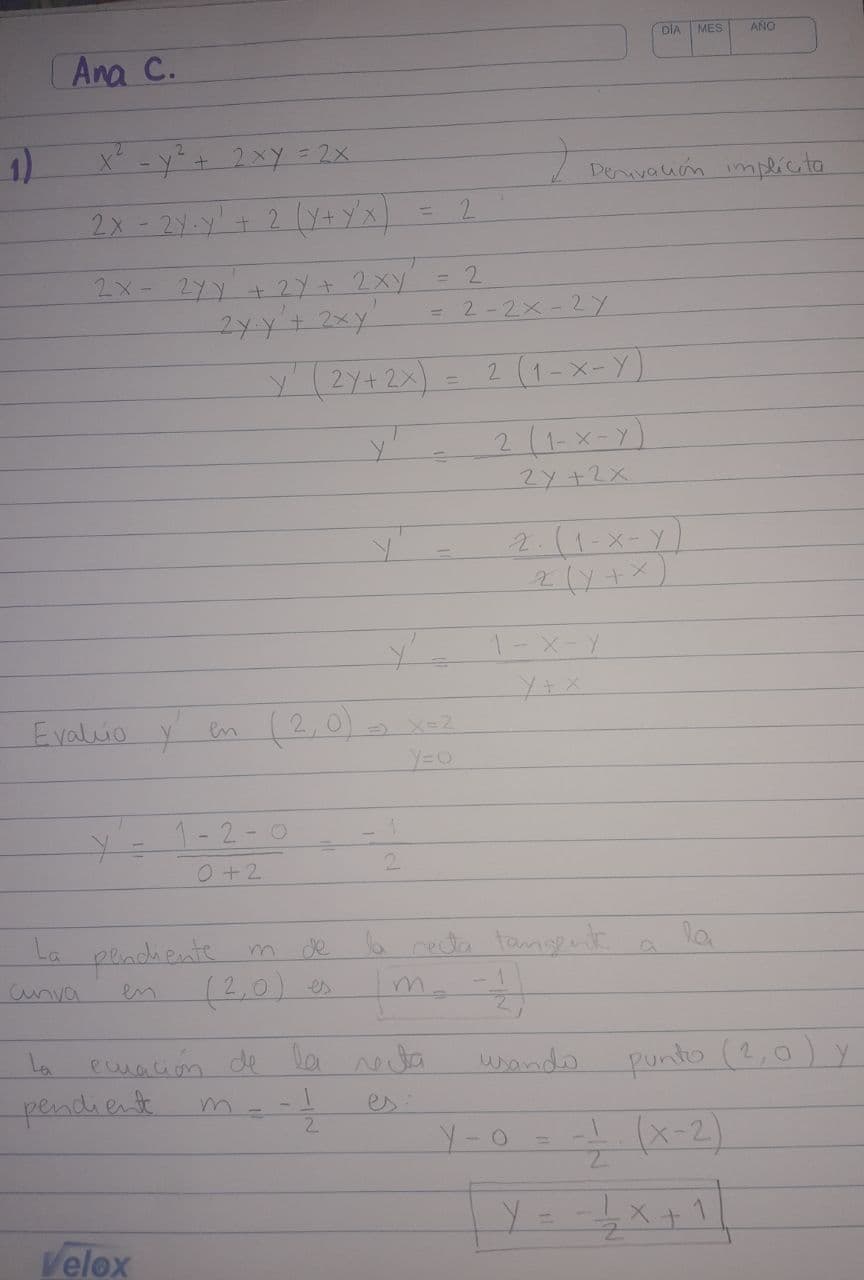 DÍA MES AÑO
Ana C.
1) x² - y² + 2xy = 2x
Derivación implícita
2x - 2y·y' + 2 (y + y'x) = 2
2x - 2yy' + 2y + 2xy' = 2
2y·y' + 2xy' = 2 - 2x - 2y
y' (2y + 2x) = 2 (1 - x - y)
y' = 2 (1 - x - y)
2y + 2x
y' = 2·(1 - x - y)
2 (y + x)
y' = 1 - x - y
y + x
Evalúo y' en (2,0) => x=2
y=0
y' = 1 - 2 - 0 = -1
0 + 2 2
La pendiente m de la recta tangente a la
curva en (2,0) es m = -1/2
La ecuación de la recta usando punto (2,0) y
pendiente m = -1/2 es:
y - 0 = -1/2 · (x-2)
y = -1/2 x + 1
Velox